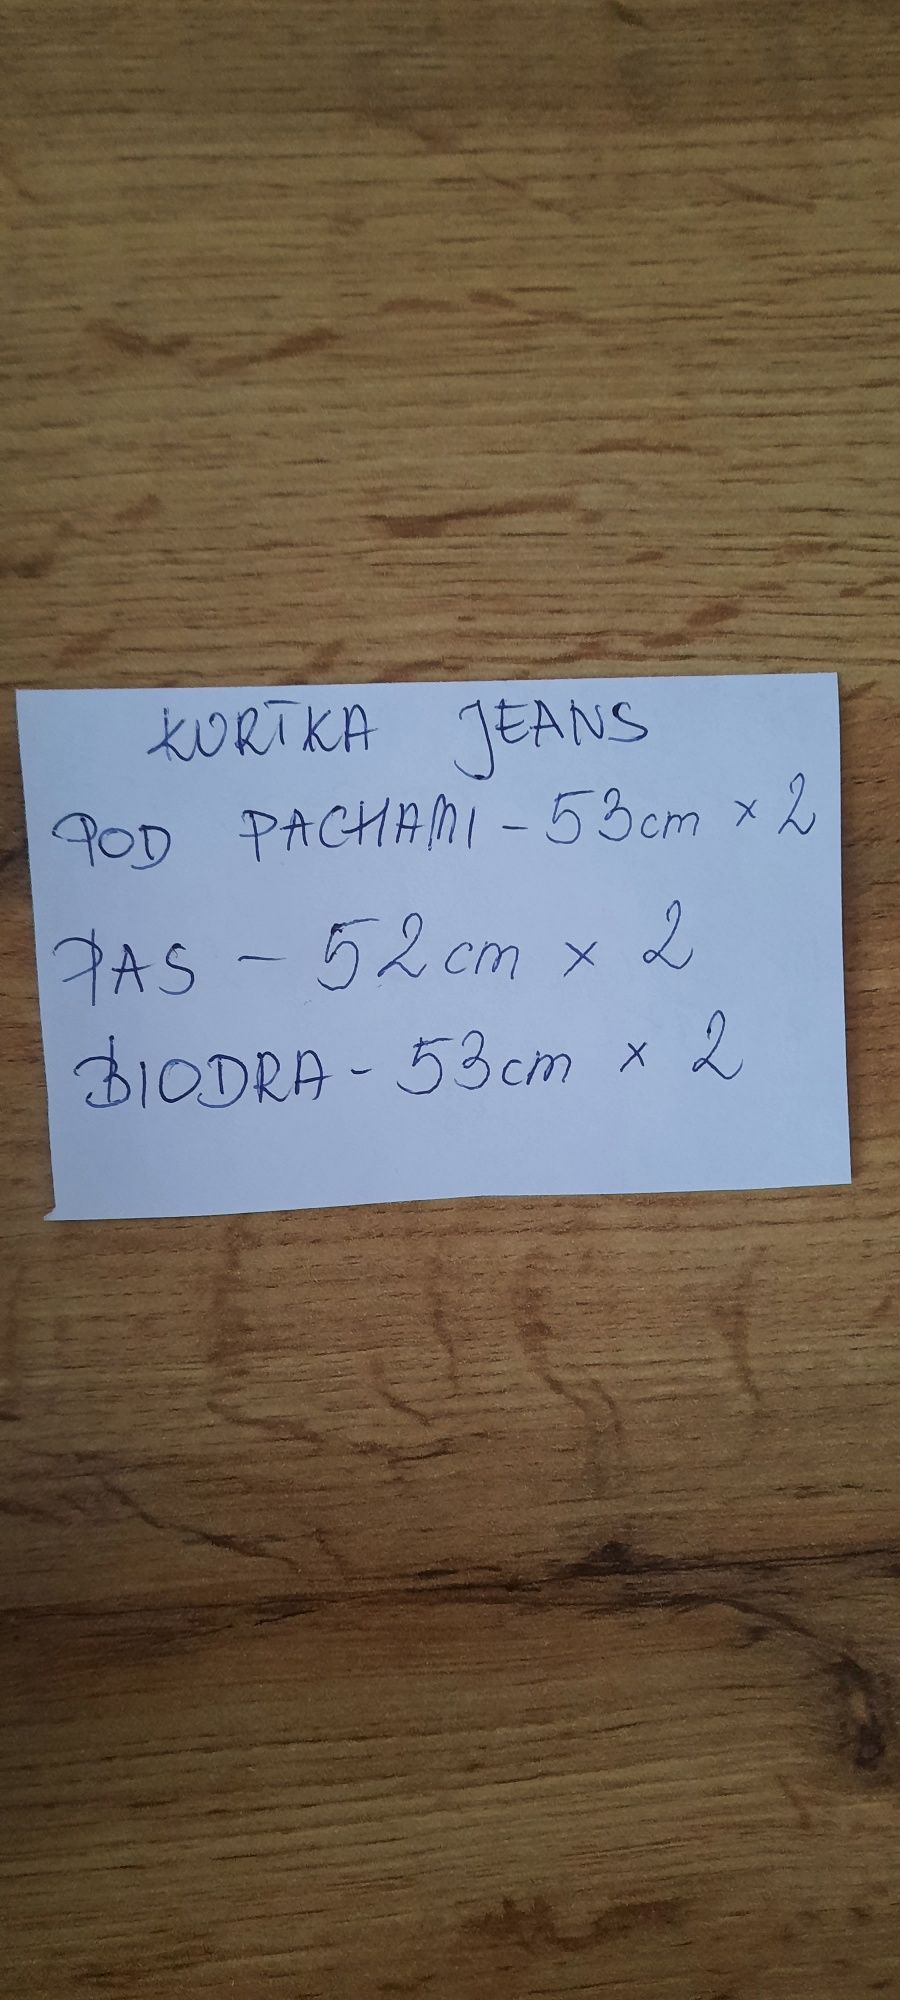 KURTKA JEANS
POD PACHAMI - 53cm x 2
PAS - 52cm x 2
BIODRA - 53cm x 2